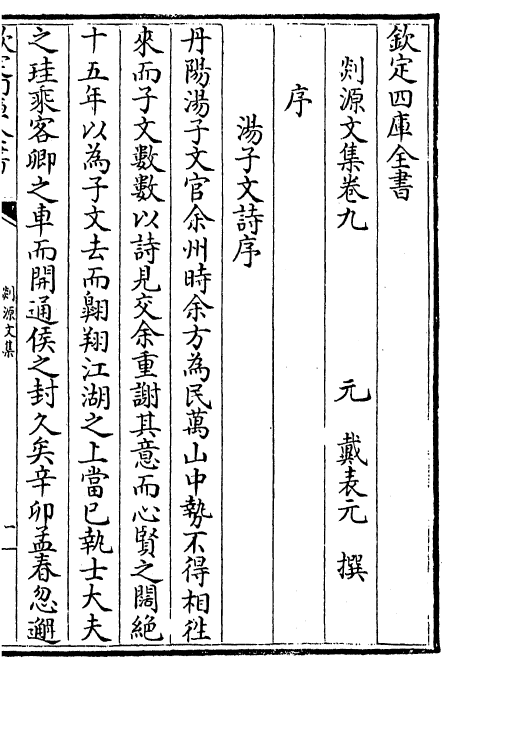 欽定四庫全書
剡源文集卷九
元 戴表元 撰
序
湯子文詩序
丹陽湯子文官余州時余方為民萬山中勢不得相徃
來而子文數數以詩見交余重謝其意而心賢之闊絶
十五年以為子文去而翺翔江湖之上當已執士大夫
之珪乘客卿之車而開通侯之封久矣辛卯孟春忽邂
剡源文集
一